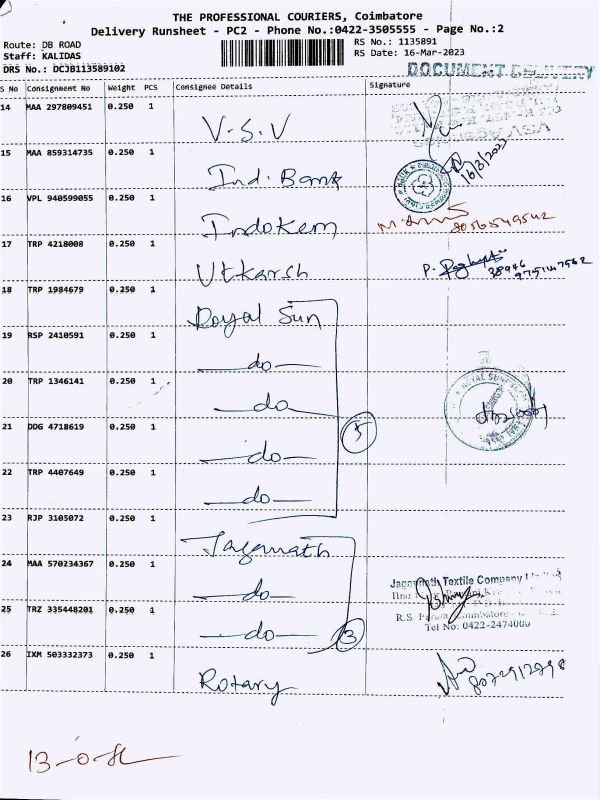 THE PROFESSIONAL COURIERS, Coimbatore
Delivery Runsheet - PC2 - Phone No.:0422-3505555 - Page No.:2
Route: DB ROAD
Staff: KALIDAS
DRS No.: DCJB113589102
RS No.: 1135891
RS Date: 16-Mar-2023
DOCUMENT DELIVERY
S No Consignment No Weight PCS Consignee Details Signature
14 MAA 297809451 0.250 1 V.S.V
15 MAA 859314735 0.250 1 Ind. Bank 16/3/2023
16 VPL 940599055 0.250 1 Indokem 8056549542
17 TRP 4218008 0.250 1 Utkarsh P. 38946 9751147562
18 TRP 1984679 0.250 1 Royal Sun
19 RSP 2410591 0.250 1 do
20 TRP 1346141 0.250 1 do
21 DDG 4718619 0.250 1 do 5
22 TRP 4407649 0.250 1 do
23 RJP 3105072 0.250 1 Jagannath
24 MAA 570234367 0.250 1 do
Jagannath Textile Company
25 TRZ 335448201 0.250 1 do 3
R.S.
Tel No: 0422-2474000
26 IXM 503332373 0.250 1 Rotary